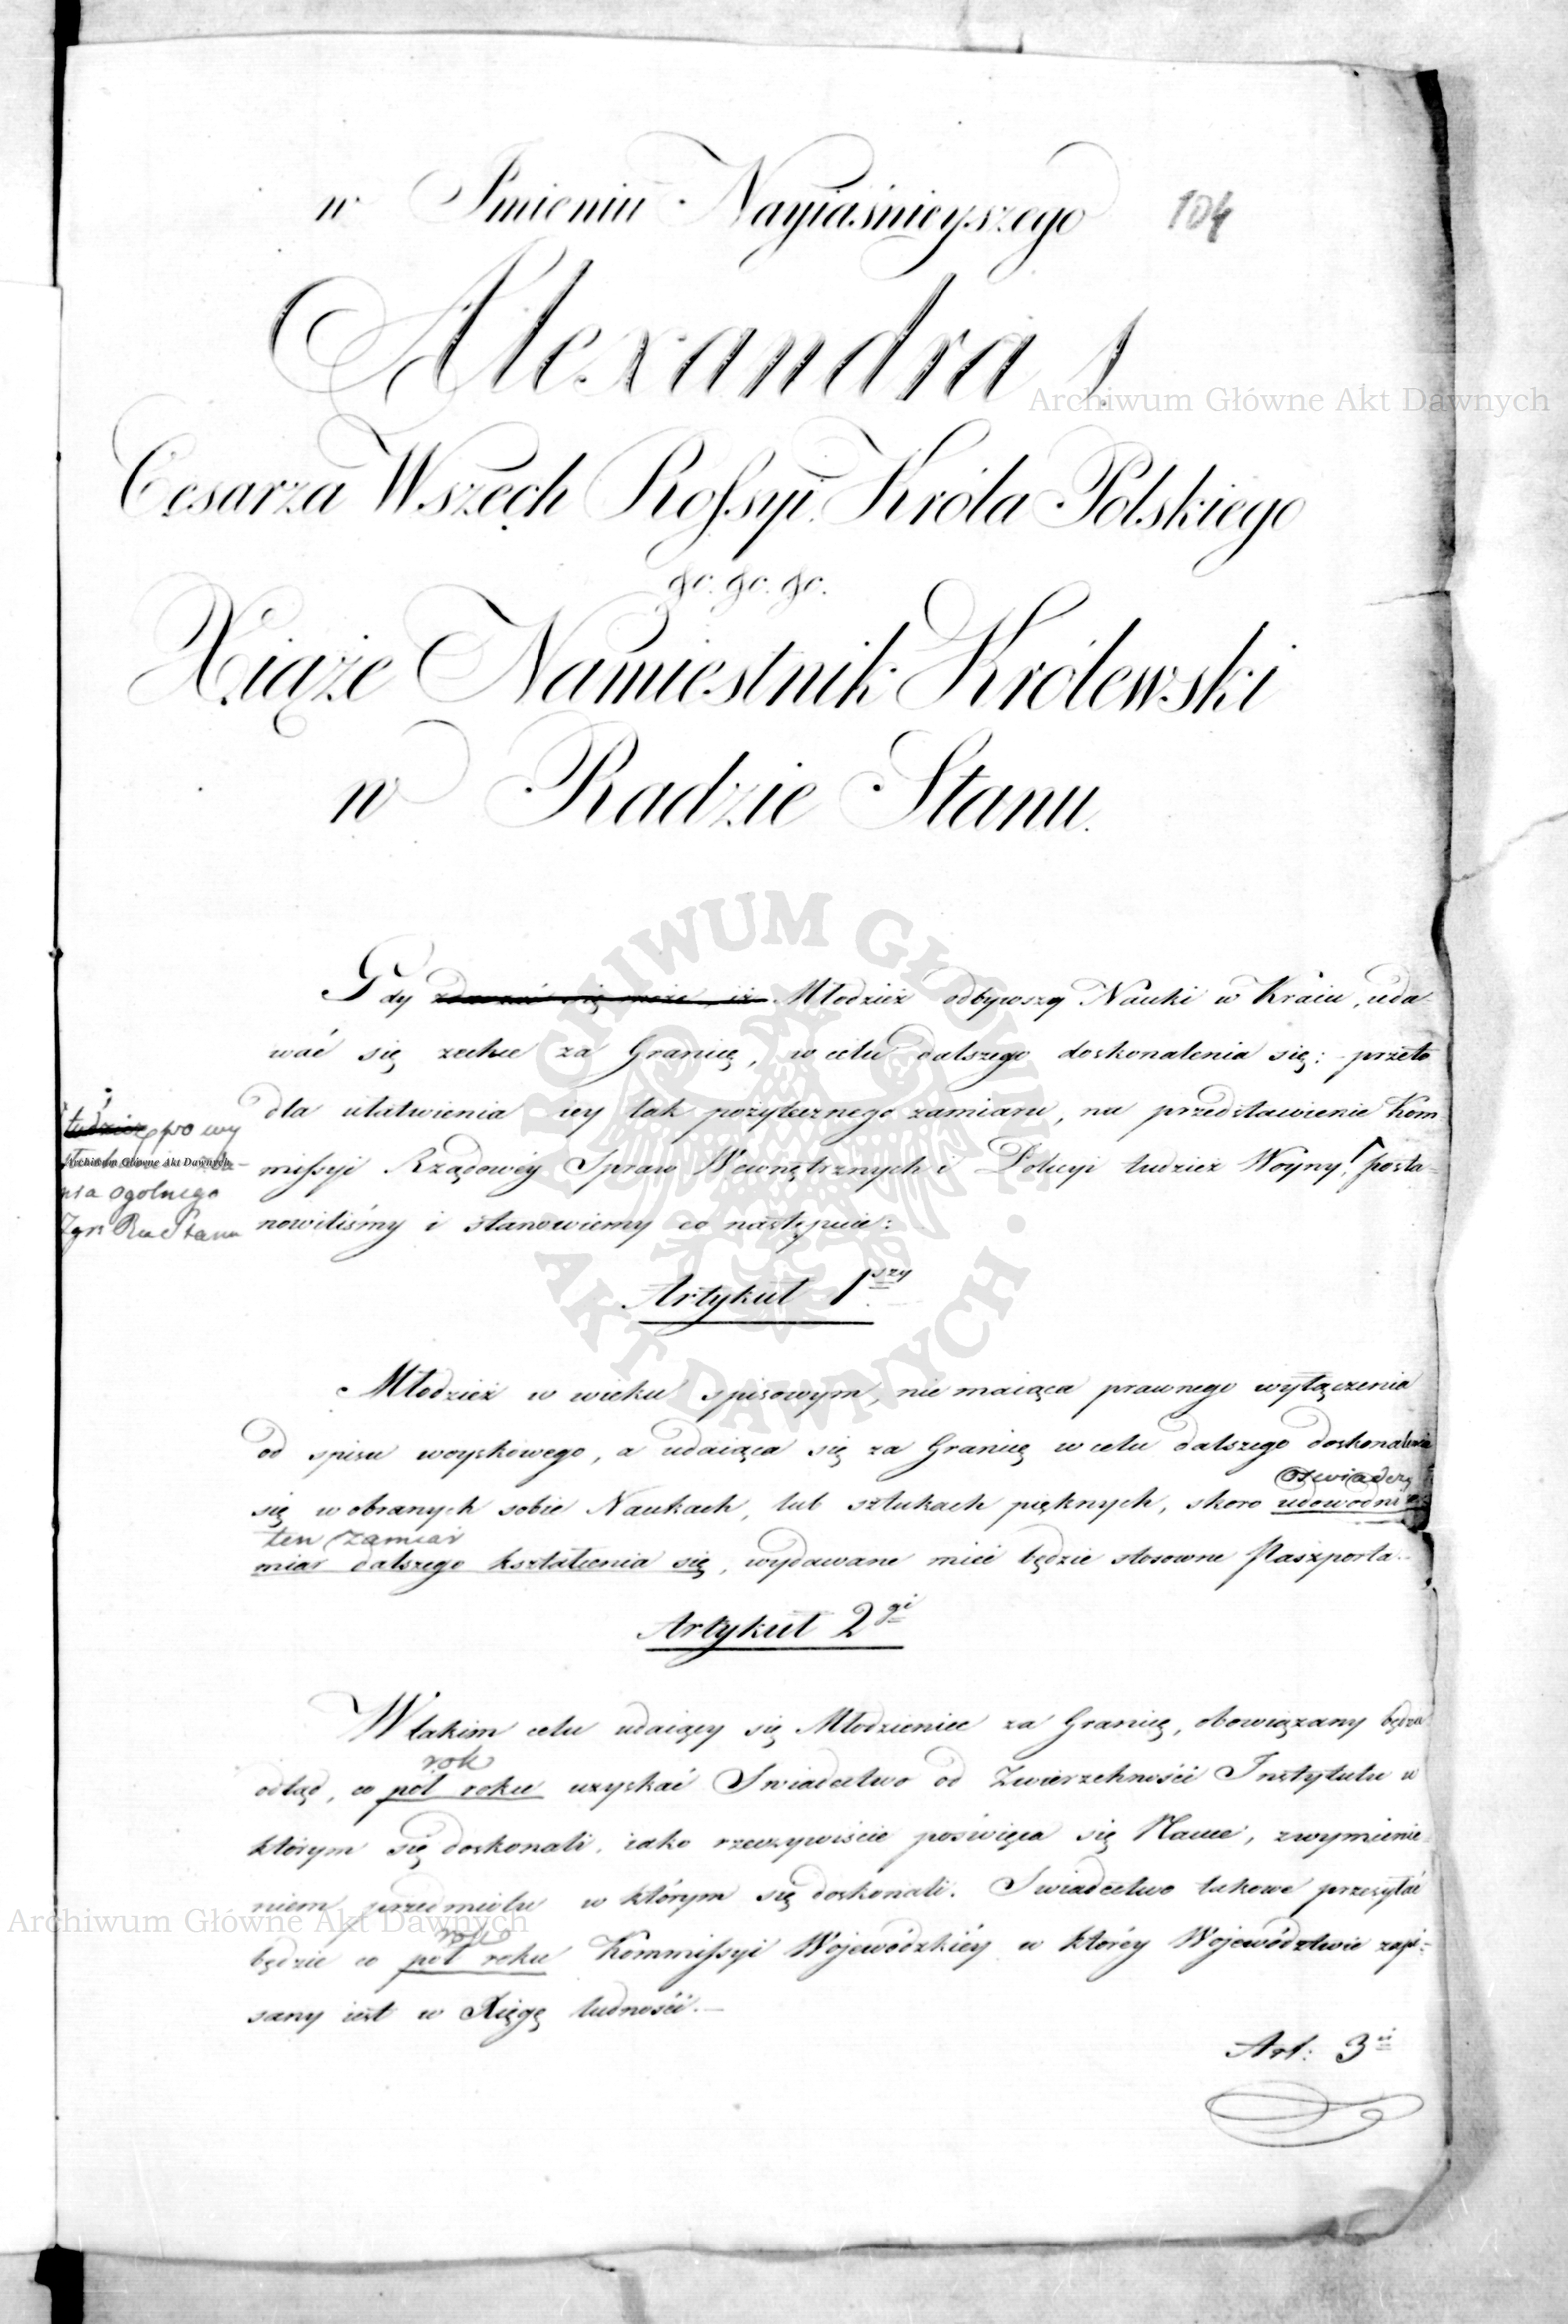 104
w Imieniu Nayiaśnieyszego
Alexandra I.
Cesarza Wszech Rossyi. Króla Polskiego
&c. &c. &c.
Xiąże Namiestnik Królewski
w Radzie Stanu.
Gdy zdarzać się może, iż Młodzież odbywszy Nauki w Kraiu, uda-
wać się zechce za Granicę, w celu dalszego doskonalenia się; przeto
dla ułatwienia iey tak pożytecznego zamiaru, na przedstawienie Kom-
missyi Rządowéy Spraw Wewnętrznych i Policyi tudzież Woyny, posta-
nowiliśmy i stanowiemy co następuie:
tudzież po wy
nia ogolnego
Zgr. Ra Stanu
Artykuł 1szy
Młodzież w wieku spisowym, nie maiąca prawnego wyłączenia
od spisu woyskowego, a udaiąca się za Granicę w celu dalszego doskonalenia
oświadczy
się w obranych sobie Naukach, lub sztukach pięknych, skoro udowodni
ten zamiar
miar dalszego kształcenia się, wydawane mieć będzie stosowne Paszporta.
Artykuł 2gi
W takim celu udaiący się Młodzieniec za Granicę, obowiązany będzie
rok
odtąd, co pół roku uzyskać Swiadectwo od Zwierzchności Instytutu w
którym się doskonali, iako rzeczywiście poświęca się Nauce, z wymienie-
niem przedmiotu w którym się doskonali. Swiadectwo takowe przesyłać
rok
będzie co pół roku Kommissyi Wojewódzkiéy w któréy Województwie zapi-
sany iest w Xięgę ludności.
Art: 3ci
Archiwum Główne Akt Dawnych
Archiwum Główne Akt Dawnych
Archiwum Główne Akt Dawnych
ARCHIWUM GŁÓWNE AKT DAWNYCH